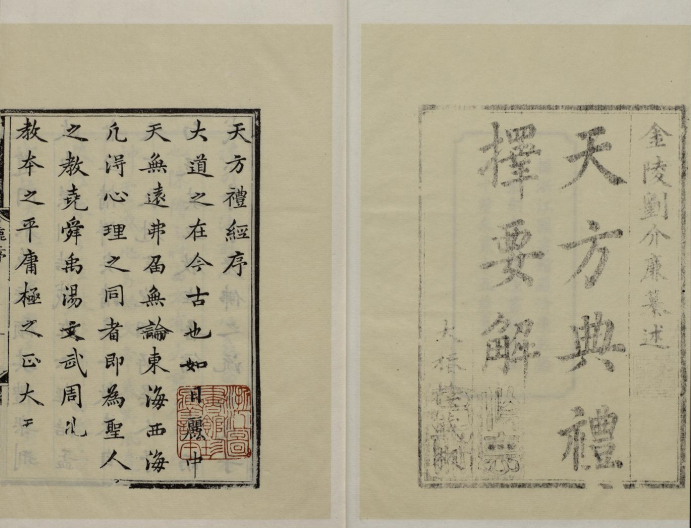 金陵劉介廉纂述
天方典禮
擇要解
天方禮經序
大道之在今古也如日麗中
天無遠弗屆無論東海西海
凡得心理之同者即為聖人
之教堯舜禹湯文武周孔
教本之平庸極之正大